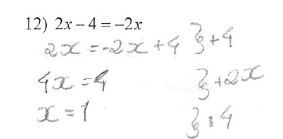 12) 2x – 4 = –2x
2x = -2x + 4 } + 4
4x = 4 } + 2x
x = 1 } : 4